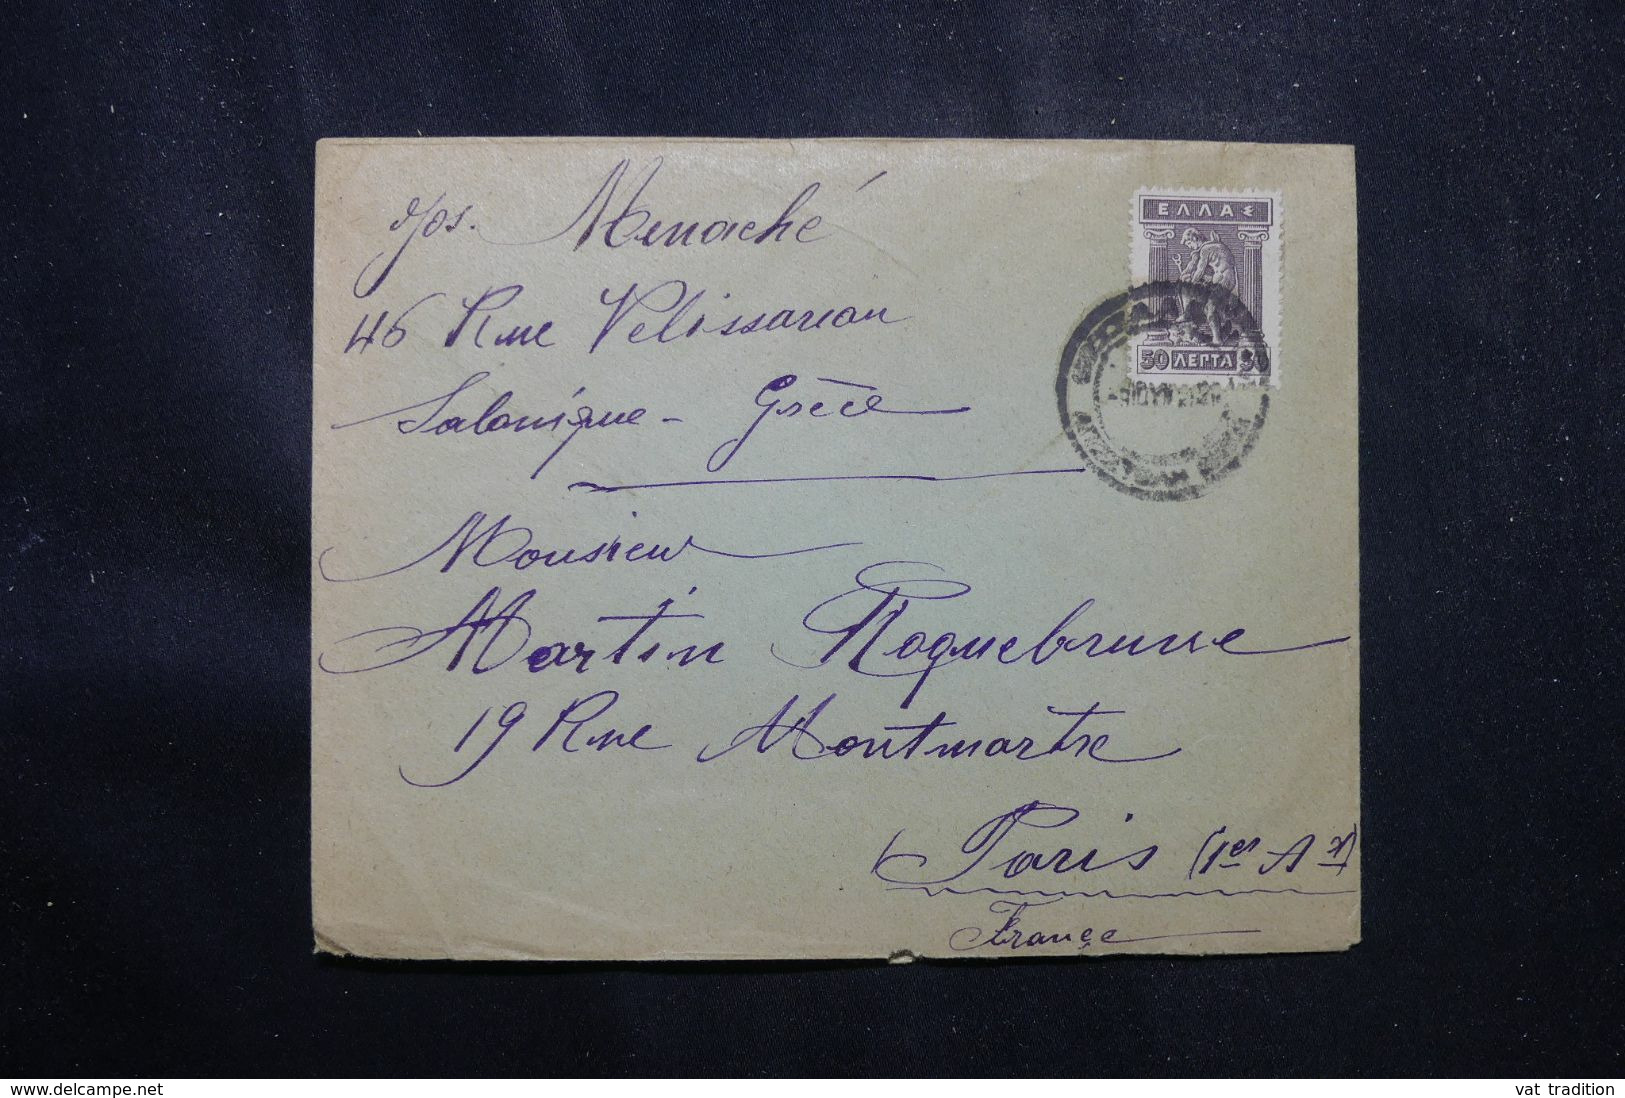 Menaché
46 Rue Velissarian
Salonique - Grèce
ΕΛΛΑΣ
50 ΛΕΠΤΑ 50
Monsieur
Martin Roquebrune
19 Rue Montmartre
Paris (1er Ar)
France
www.delcampe.net
vat tradition